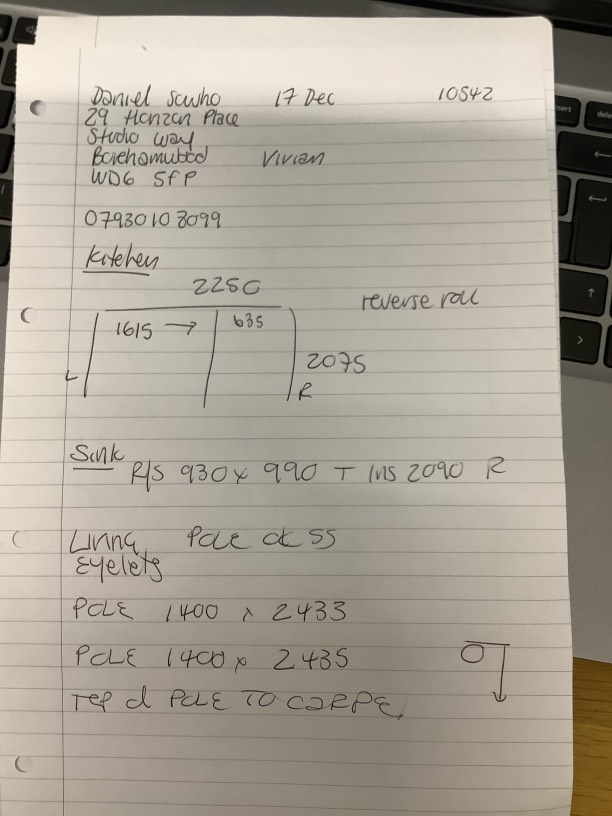 Daniel 17 Dec 10542
29 Place
Studio Way
Borehamwood Vivian
WD6 5FP
07930103099
Kitchen
2250
reverse roll
1615 → 635
2075
L R
Sink
R/S 930 x 990 T Ins 2090 R
Living Pole ss
Eyelets
POLE 1400 x 2433
POLE 1400 x 2435
Top d POLE TO CARPE